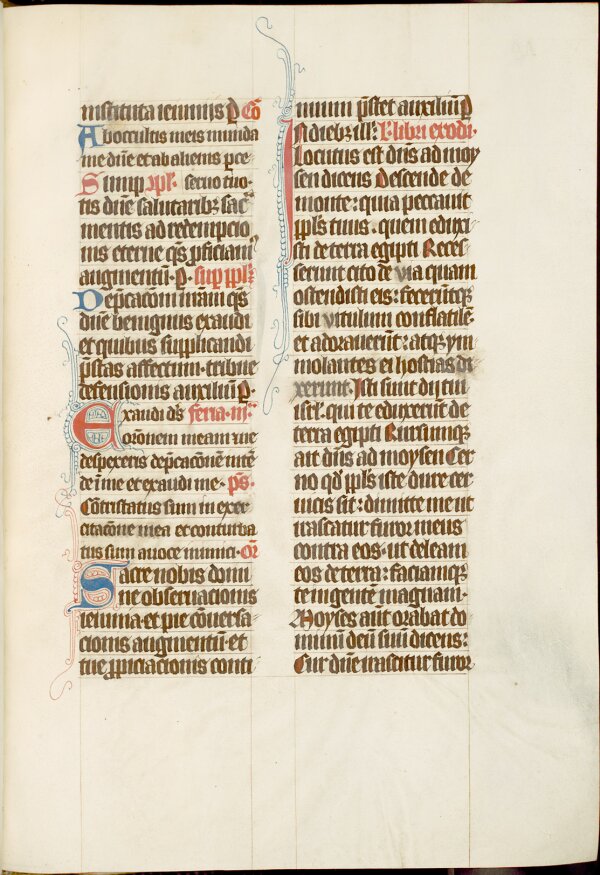 instituta ieiuniis p̱ Cō
Ab occultis meis munda
me dn̄e et ab alienis pce
S umpꝭ ꝓpl̄. seruo tuo·
tis dn̄e salutaribꝫ sac̄
mentis ad redempcio
nis eterne qs̄ ꝓficiam̄
augmentū· p̱· sup̱ ppl̄m̄
Dep̄cacōm nr̄am qs̄
dn̄e benignus exaudi
et quibus supplicandi
p̄stas affectum· tribue
defensionis auxiliū p̱·
Exaudi ds̄ feria·iii·
orōnem meam et ne
despexeris dep̄cacōnē intē
de ī me et exaudi me· ps̄·
Cōtristatus sum in exer
citacōne mea et conturba
tus sum a uoce inimici· or̄
Sacre nobis domi
ne obseruacionis
ieiunia· et pie cōuersa
cionis augmentū· et
tue ꝓpiciacionis conti
nuum p̄stet auxiliū p̱
In diebꝫ ill̄· L·libri exodi·
Locutus est dn̄s ad moy
sen dicens Descende de
monte: quia peccauit
ppl̄s tuus· quem eduxi
sti de terra egipti Reces
serunt cito de via quam
ostendisti eis: feceruntqꝫ
sibi vitulum conflatilē·
et adorauerūt: atqꝫ ym
molantes ei hostias di
xerunt· Isti sunt dij tui
isrl̄· qui te eduxerūt de
terra egipti Rursumqꝫ
ait dn̄s ad moysen Cer
no qd̄ ppl̄s iste dure cer
uicis sit: dimitte me ut
irascatur furor meus
contra eos· ut deleam
eos de terra: faciamqꝫ
te in gentē magnam·
Moyses aūt orabat do
minū deū suū dicens:
Cur dn̄e irascitur furor